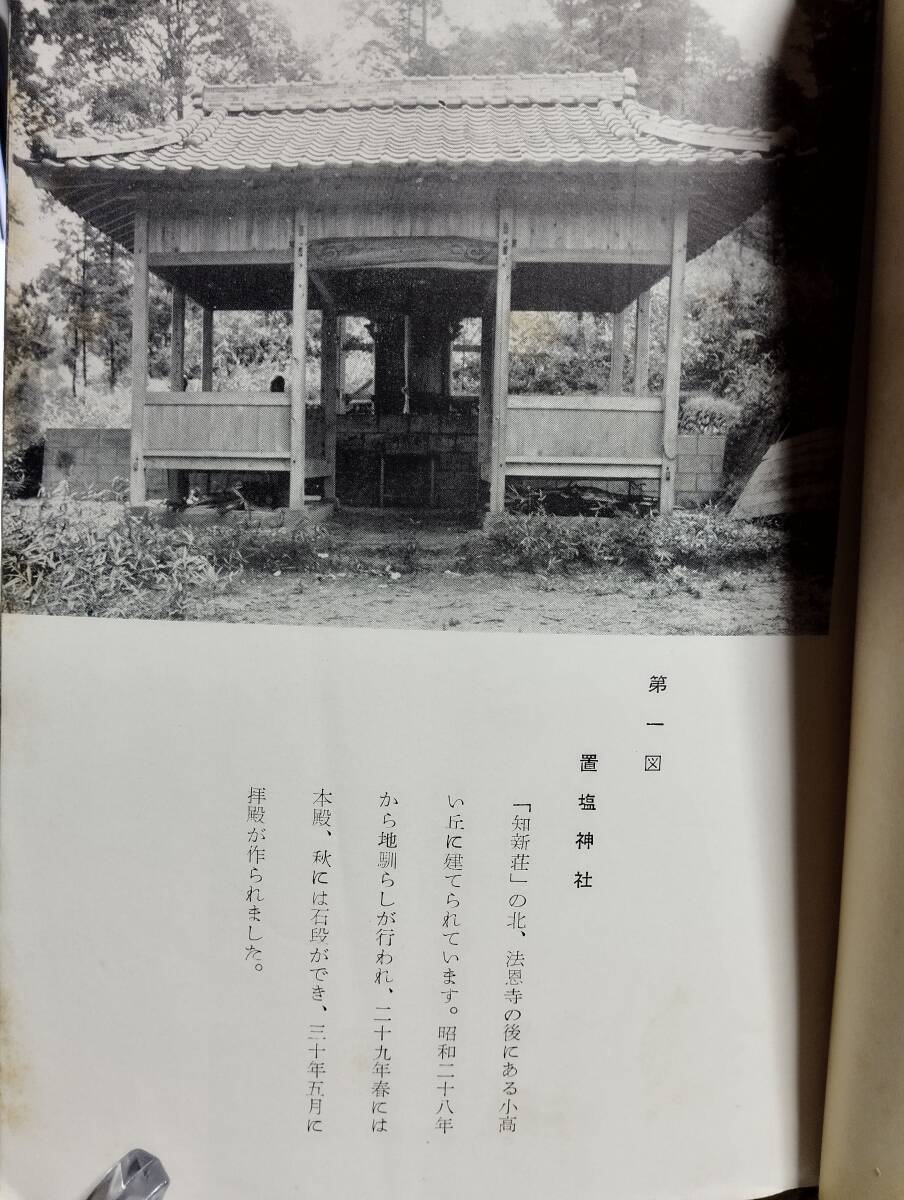 第一図
置塩神社
「知新荘」の北、法恩寺の後にある小高
い丘に建てられています。昭和二十八年
から地馴らしが行われ、二十九年春には
本殿、秋には石段ができ、三十年五月に
拝殿が作られました。